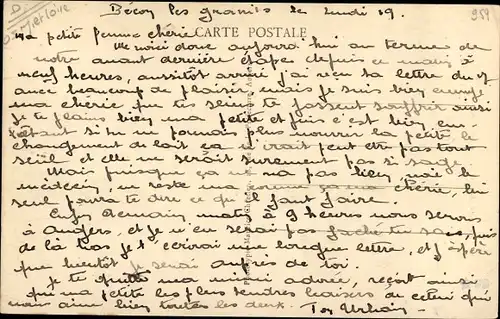 D
Mtre et Loire
959
Bécon les granits le lundi 19.
CARTE POSTALE
Ma petite femme chérie
Me voici donc aujourd'hui au terme de
notre avant dernière étape depuis ce matin à
neuf heures, aussitôt arrivé j'ai reçu ta lettre du 17
avec beaucoup de plaisir, mais je suis bien ennuyé
ma chérie que tes seins te fassent souffrir ainsi
je te plains bien ma petite et puis c'est bien em
bêtant si tu ne pouvais plus nourrir la petite le
changement de lait ça n'irait peut être pas tout
seul et elle ne serait surement pas si sage.
Mais puisque ça ne va pas bien, voie le
médecin, en reste ma chérie, lui
seul pourra te dire ce qu'il faut faire.
Enfin demain matin à 9 heures nous serons
à Angers, et je n'en serai pas faché tu sais, puis
de là bas je t'écrirai une longue lettre, et j'espère
que bientôt je serai auprès de toi.
Je te quitte ma mimi adorée, reçoit ainsi
que ma petite les plus tendres baisers de celui qui
vous aime bien toutes les deux. Ton Urbain